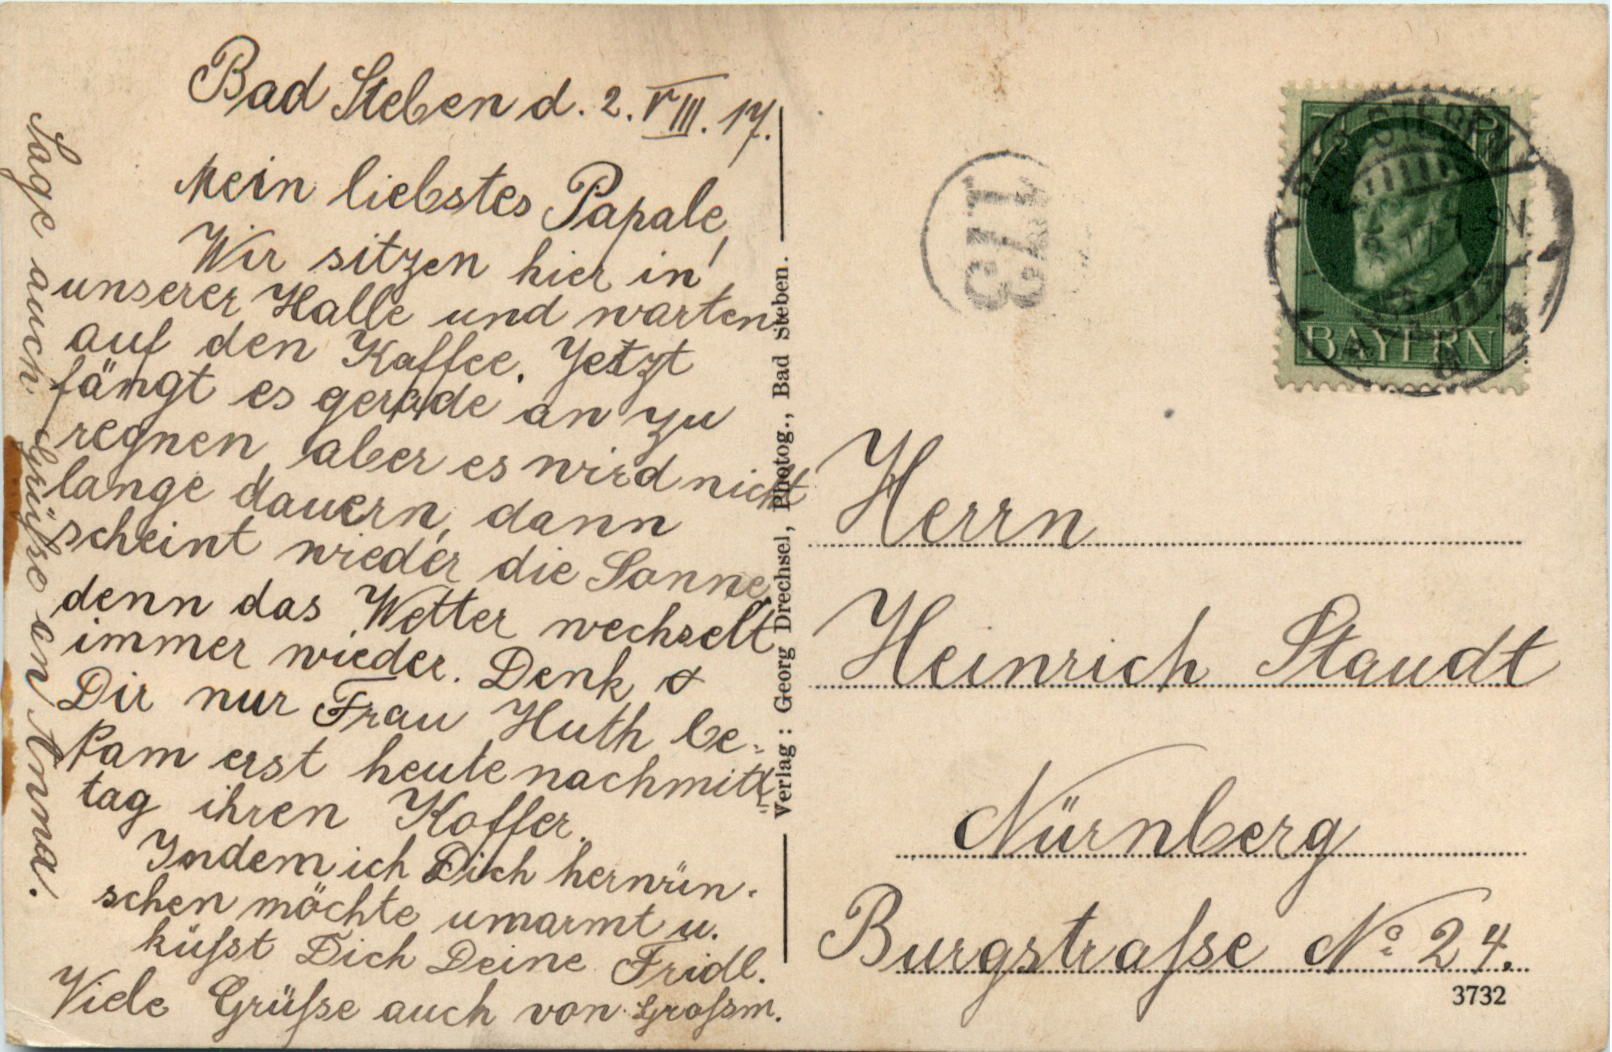 Bad Steben d. 2. VIII. 17.
Mein liebstes Papale,
Wir sitzen hier in
unserer Halle und warten
auf den Kaffee. Jetzt
fängt es gerade an zu
regnen, aber es wird nicht
lange dauern, dann
scheint wieder die Sonne,
denn das Wetter wechselt
immer wieder. Denk
Dir nur Frau Huth be-
kam erst heute nachmit-
tag ihren Koffer.
Indem ich Dich herwün-
schen möchte umarmt u.
küſst Dich Deine Fridl.
Viele Grüſse auch von Groſsm.
Sage auch Grüſse an Anna.
Verlag: Georg Drechsel, Photog., Bad Steben.
173
BAYERN
Herrn
Heinrich Staudt
Nürnberg
Burgstraſse No 24.
3732